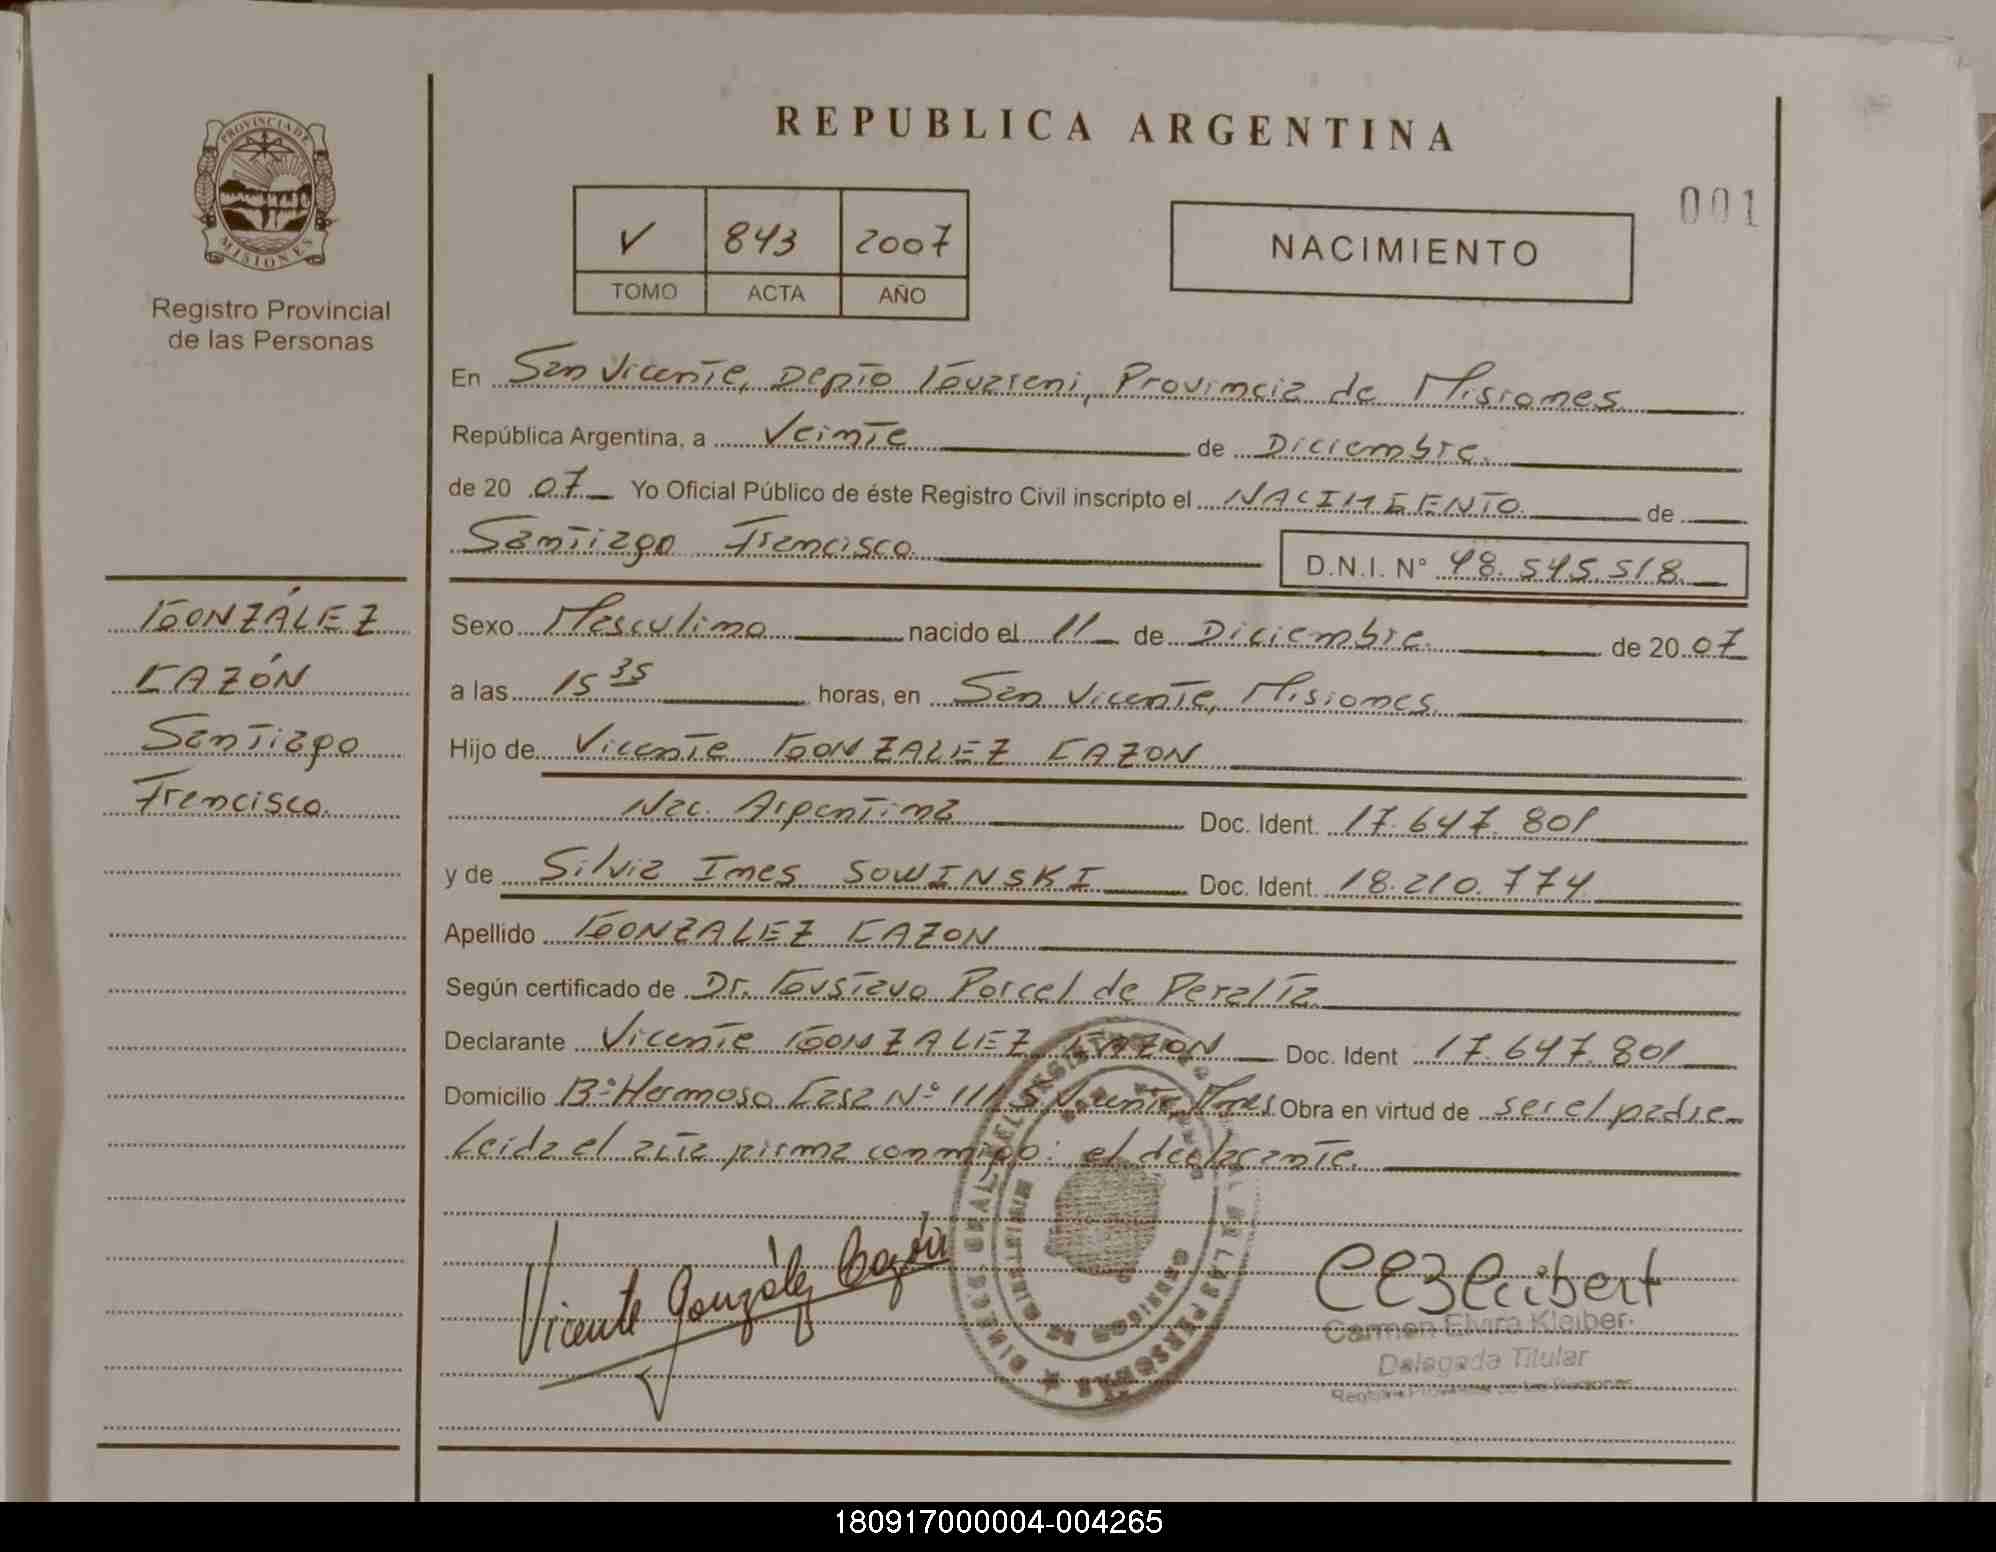 REPUBLICA ARGENTINA
PROVINCIA DE
MISIONES
Registro Provincial
de las Personas
V 843 2007
TOMO ACTA AÑO
NACIMIENTO
001
En San Vicente, Depto Guaraní, Provincia de Misiones
República Argentina, a Veinte de Diciembre
de 20 07 Yo Oficial Público de éste Registro Civil inscripto el NACIMIENTO de
Santiago Francisco D.N.I. N° 48.545.518
GONZÁLEZ
CAZÓN
Santiago
Francisco
Sexo Masculino nacido el 11 de Diciembre de 20 07
a las 15 35 horas, en San Vicente, Misiones
Hijo de Vicente GONZALEZ CAZON
Nac. Argentina Doc. Ident. 17.647.801
y de Silvia Ines SOWINSKI Doc. Ident. 18.210.774
Apellido GONZALEZ CAZON
Según certificado de Dr. Gustavo Porcel de Peralta
Declarante Vicente GONZALEZ CAZON Doc. Ident 17.647.801
Domicilio B° Hermoso Casa N° 111 S Vicente, Mnes Obra en virtud de ser el padre
Leida el acta firma conmigo: el declarante.
Vicente González Cazón
Carmen Elvira Kleiber
Delegada Titular
180917000004-004265